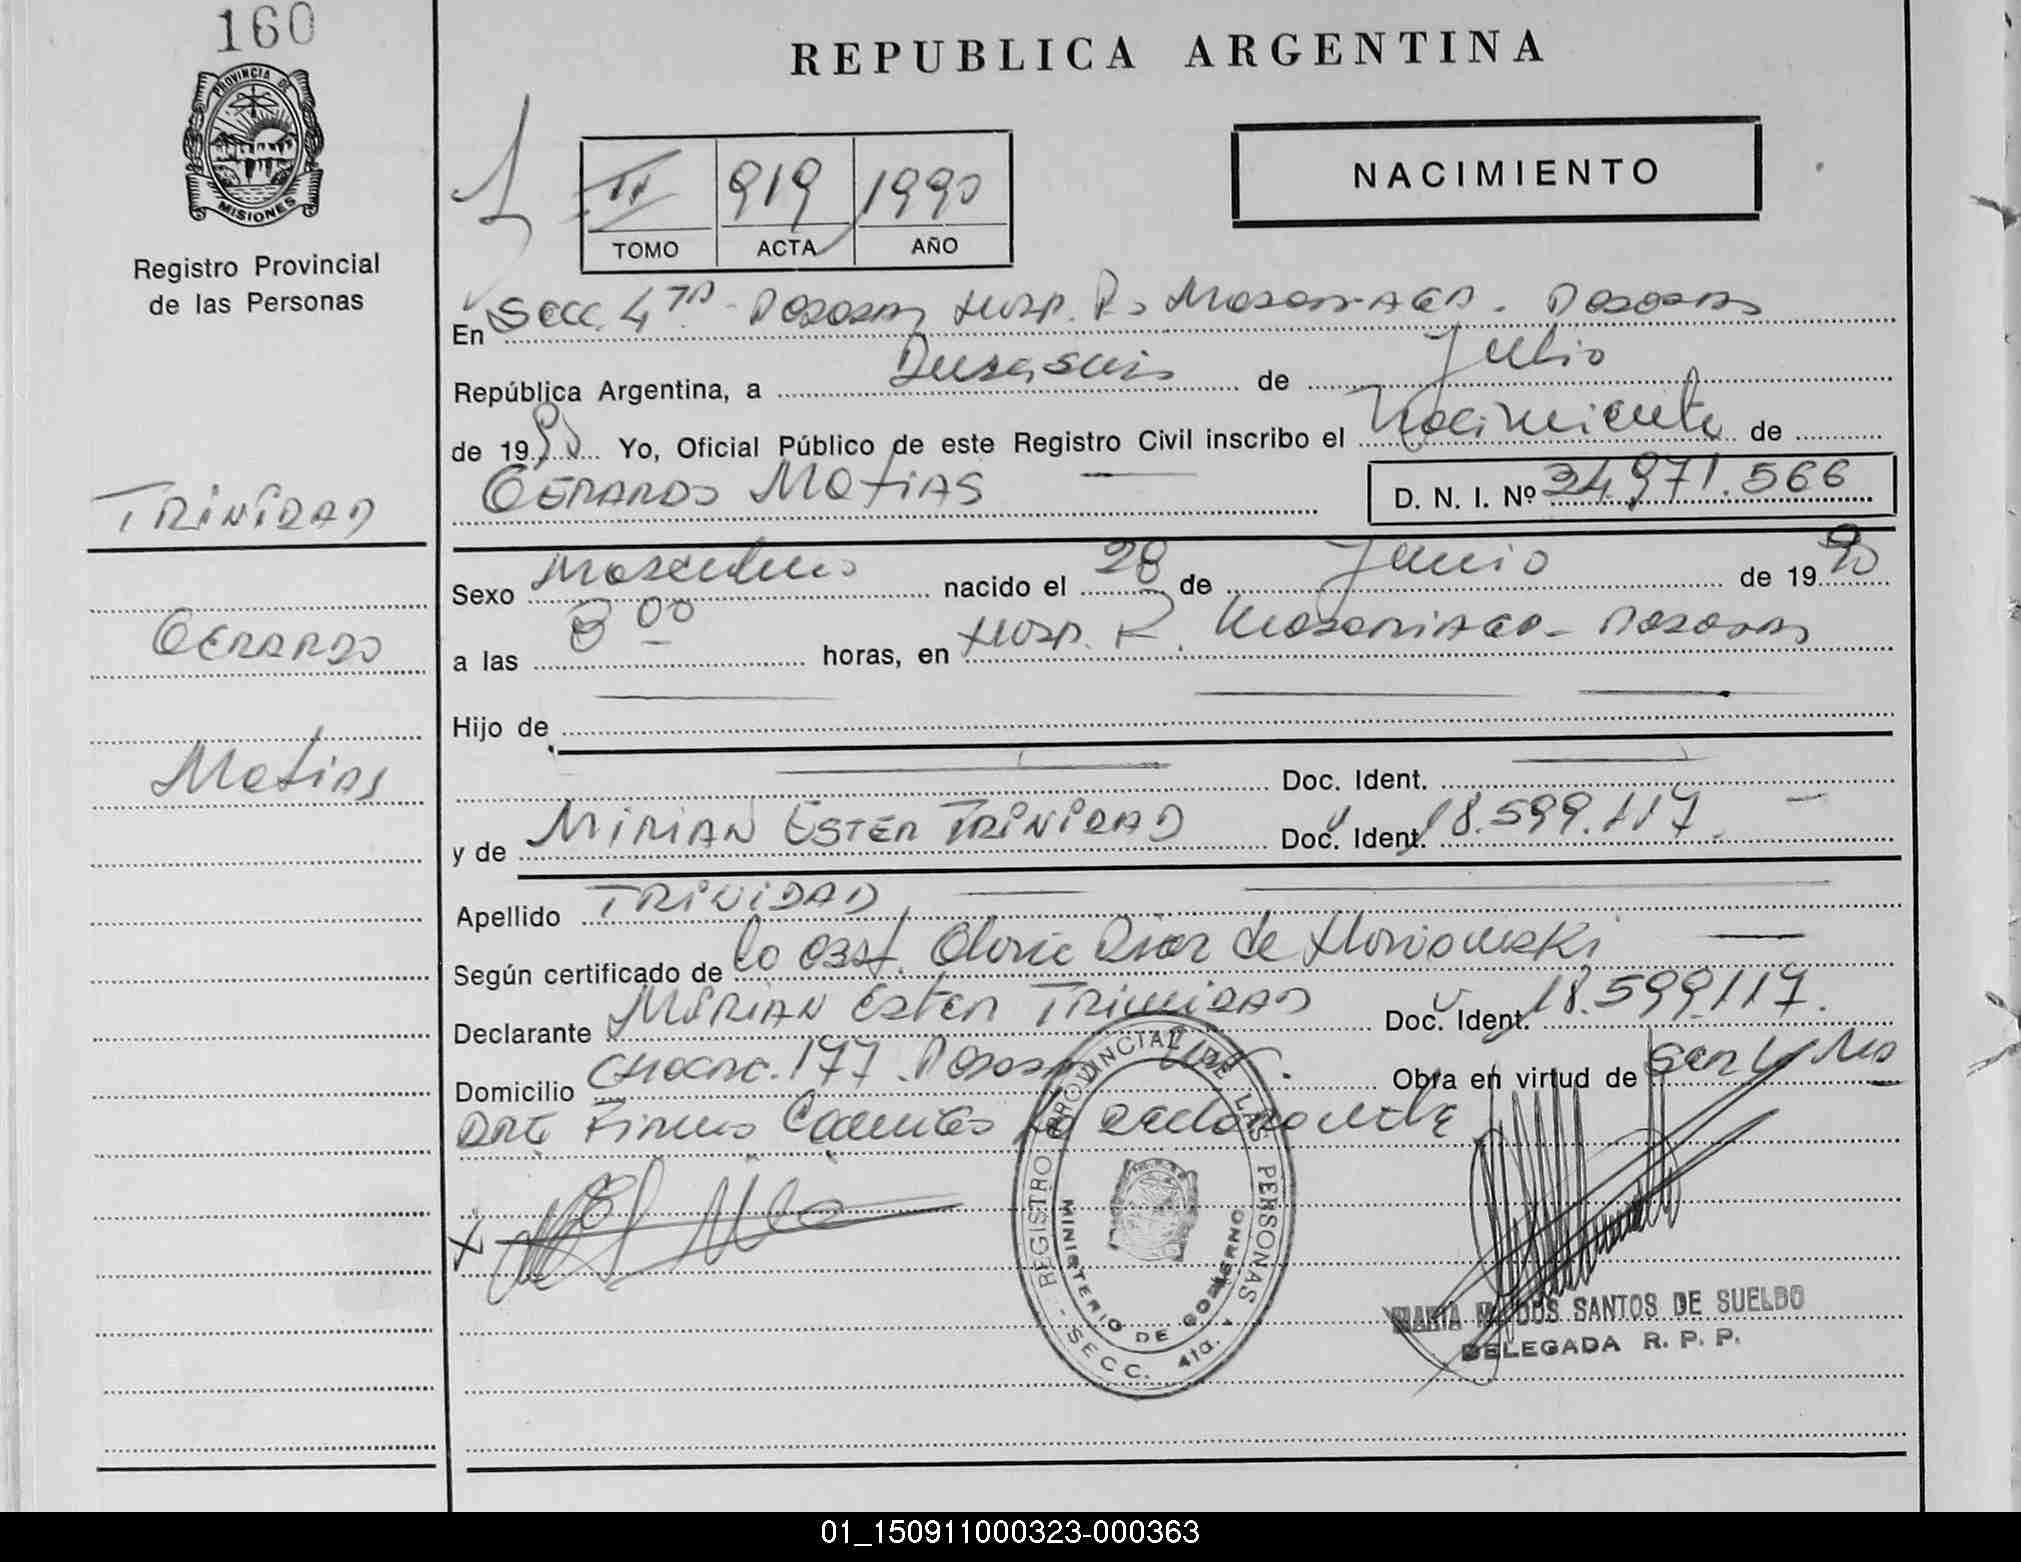 160
PROVINCIA DE
MISIONES
Registro Provincial
de las Personas
REPUBLICA ARGENTINA
NACIMIENTO
II 919 1990
TOMO ACTA AÑO
En Secc. 4TA - Posadas Hosp. R. Posadas
República Argentina, a de Julio
de 19 90 Yo, Oficial Público de este Registro Civil inscribo el Nacimiento de
GERARDO MATIAS D. N. I. Nº 34.971.566
TRINIDAD
GERARDO
Matias
Sexo Masculino nacido el 28 de Junio de 19 90
a las 8 00 horas, en Hosp. R. Posadas
Hijo de
Doc. Ident.
y de MIRIAN ESTER TRINIDAD Doc. Ident. 18.599.117
Apellido TRINIDAD
Según certificado de la Obst. Gloria Diaz de
Declarante MIRIAN Ester TRINIDAD Doc. Ident. 18.599.117.
Domicilio CHACRA 177 Posadas Obra en virtud de
Firma la declarante
X
REGISTRO PROVINCIAL DE LAS PERSONAS
MINISTERIO DE GOBIERNO
- SECC. 4ta.
MARIA M. DOS SANTOS DE SUELDO
DELEGADA R. P. P.
01_150911000323-000363